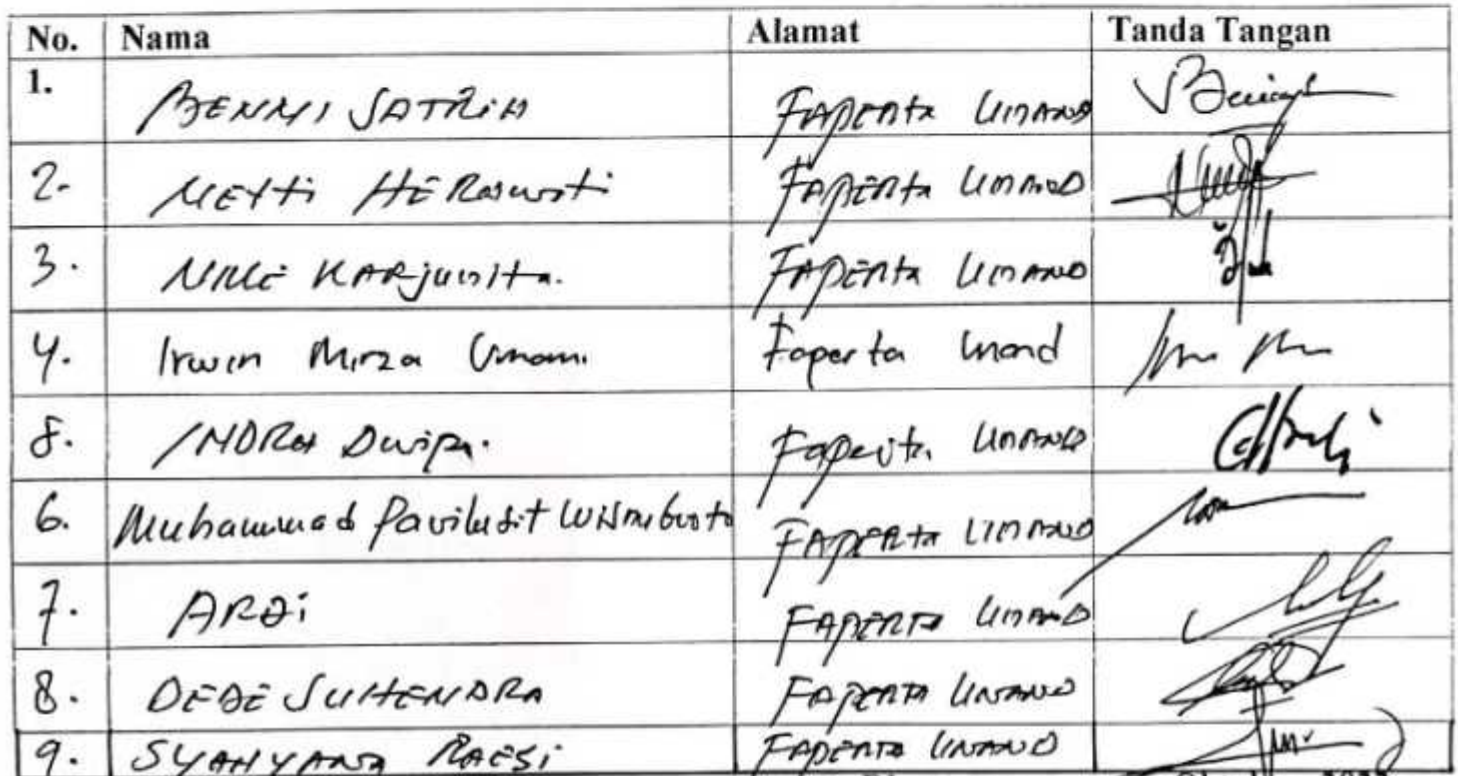 No. Nama Alamat Tanda Tangan
1. BENNI SATRIA Faperta UNAND
2. NETTI HERAWATI Faperta UNAND
3. NILLE KARJUNITA. FAPERTA UNAND
4. Irwin Mirza Umami Faperta Unand
5. INDRA Dwipa. Faperta UNAND
6. Muhammad FAPERTA UNAND
7. ARDi FAPERTA UNAND
8. DEDE SUHENDRA FAPERTA UNAND
9. SYAHYANA RAESi FAPERTA UNAND